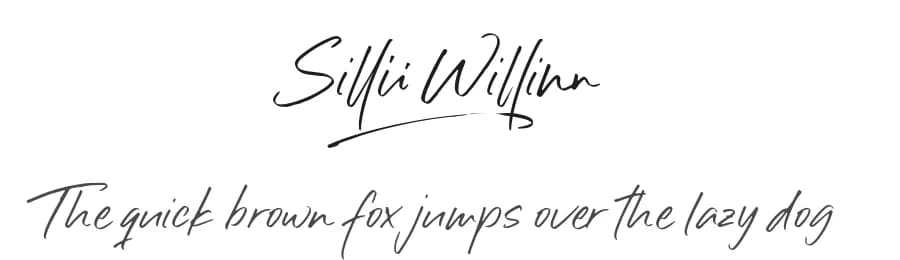 Sillii Willinn
The quick brown fox jumps over the lazy dog